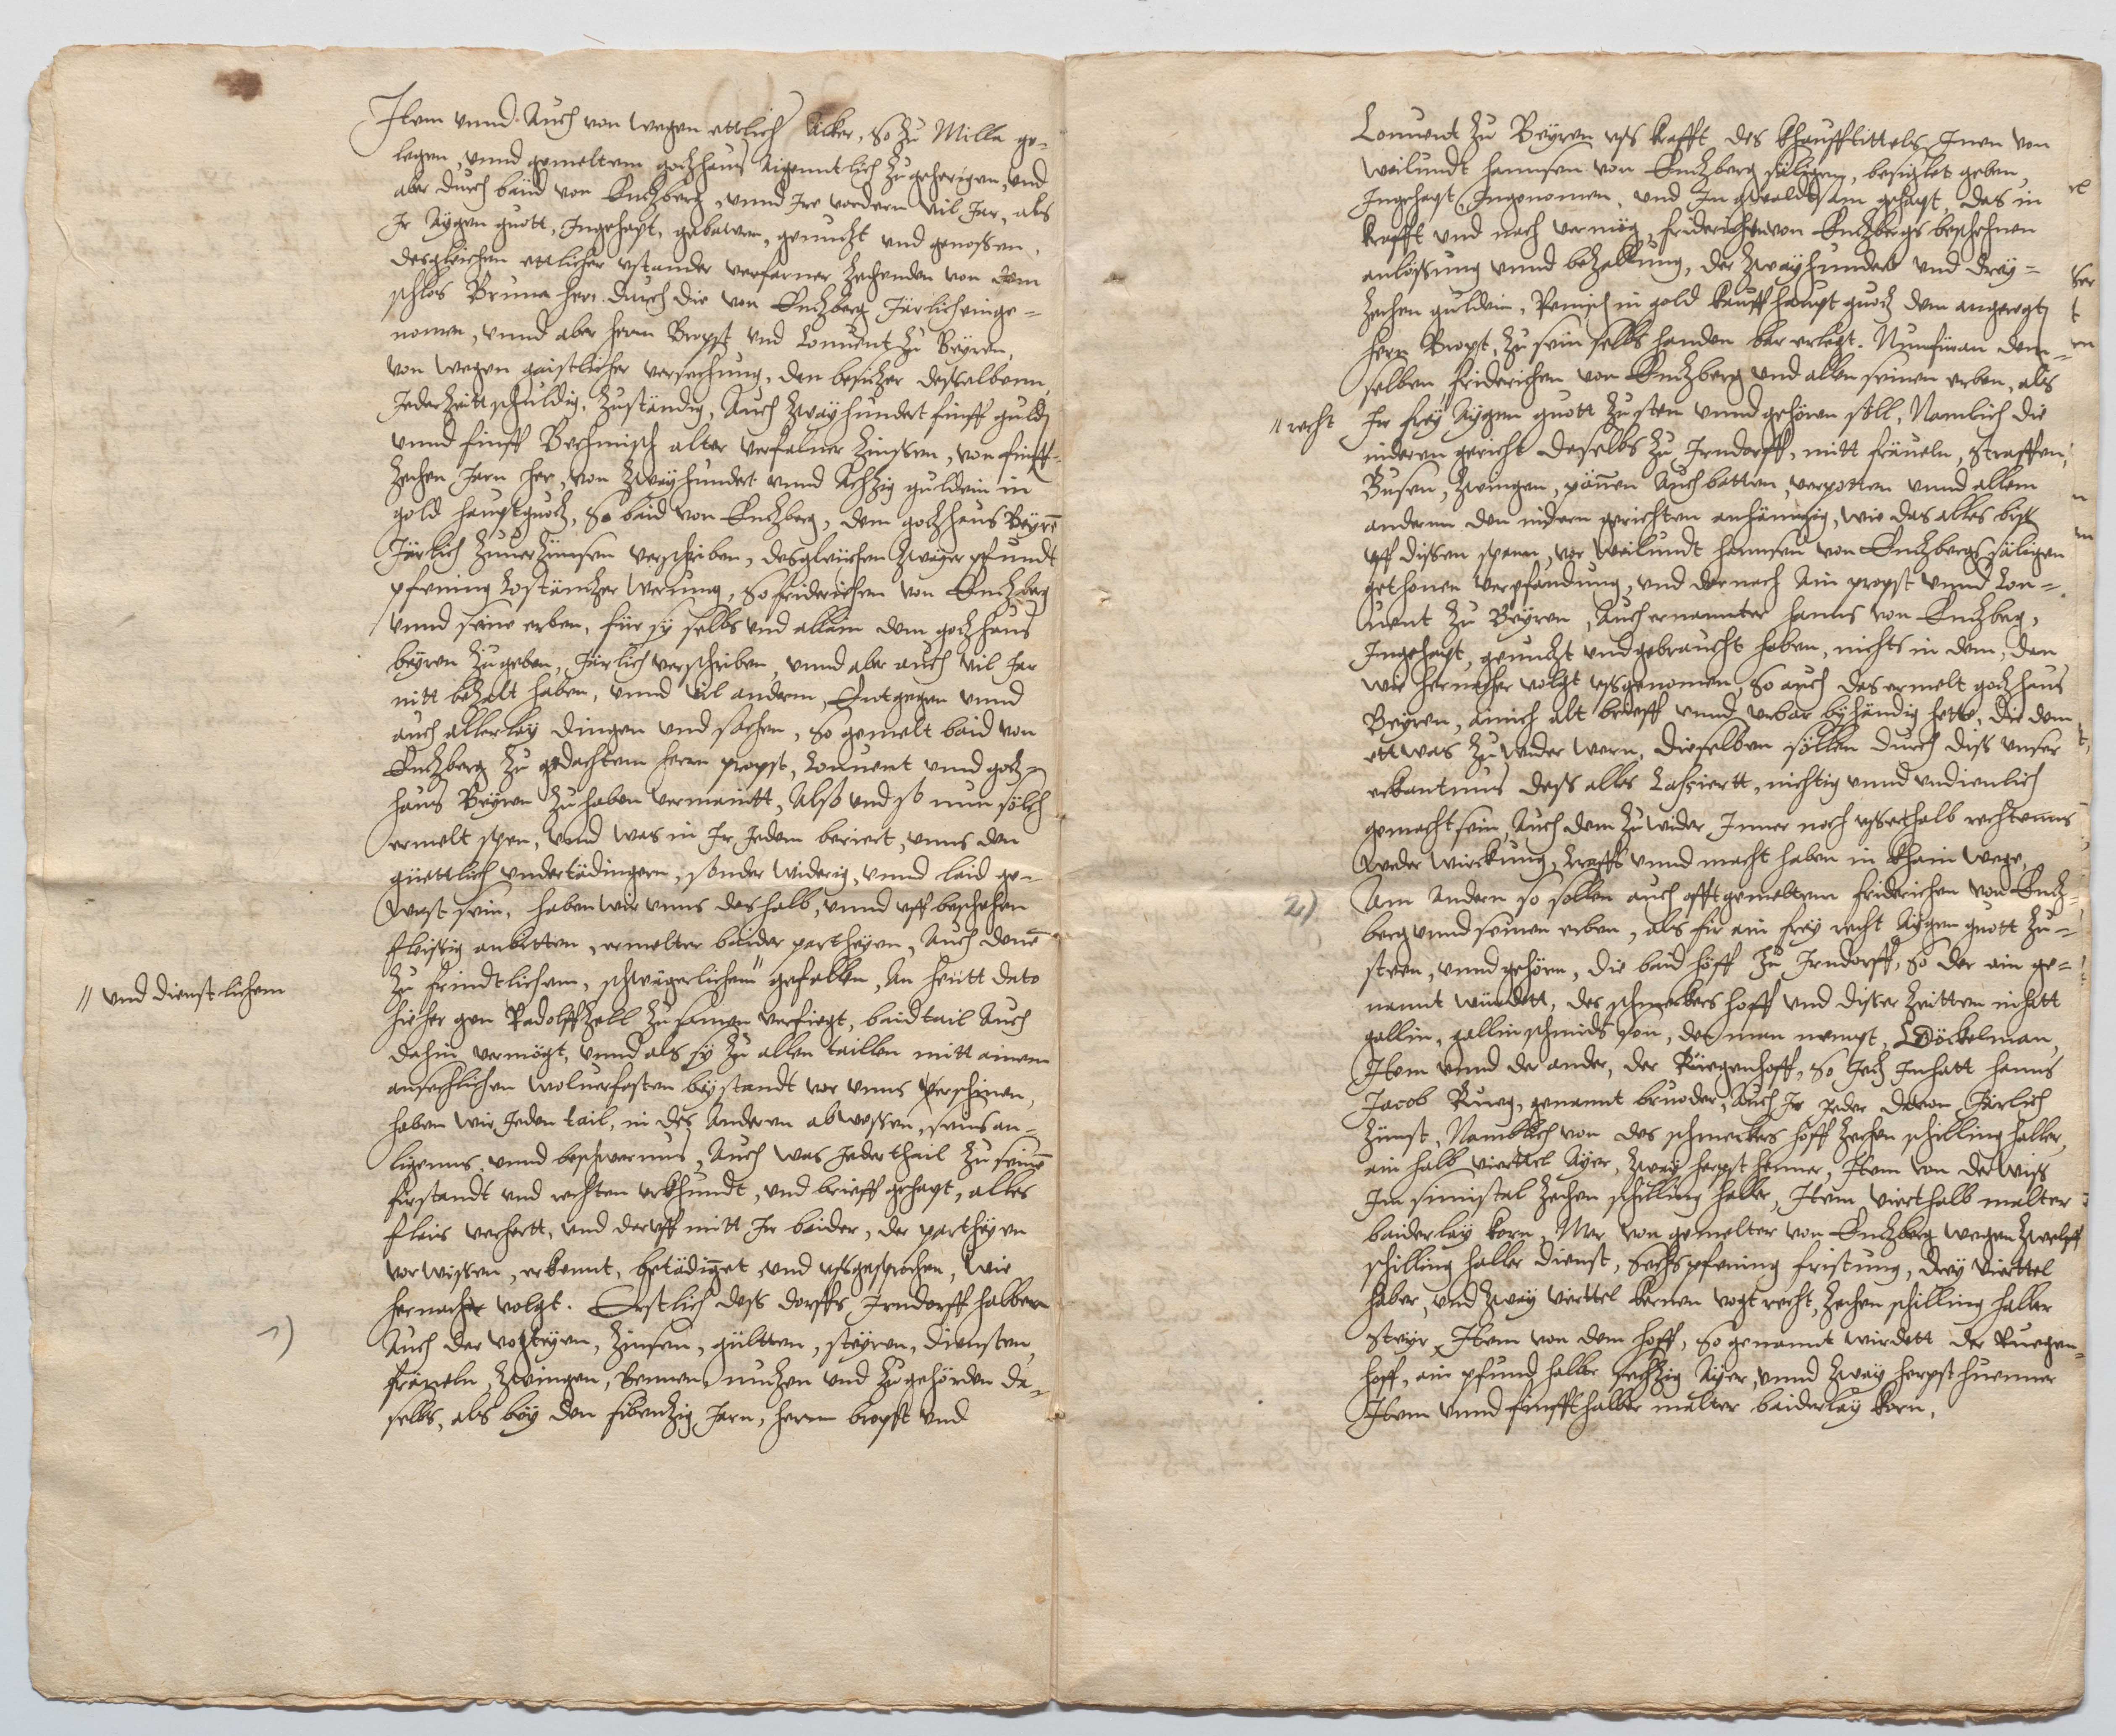 Item vnnd Auch von wegen ettlich Äcker, so zu Milla ge-
legen, vnnd gemeltem gotzhaus Aigenntlich zugeherigen, vnd
aber durch baid von Enntzberg, vnnd Ire vordern vil Jar, als
Ir Aygen guott, Ingehapt, gebawen, genutzt vnd genossen,
desgleichen ettlicher vstander verfarner zechenden von dem
schlos Brunn herr durch die von Enntzberg Järlich einge-
nomen, vnnd aber herrn Bropst vnd Conuent zu Beyren,
von wegen gaistlicher versechung, den besitzer desselbenn,
Jederzeitt schuldig, zuständig, Auch zwayhundert finff guld
vnnd finff Bechmisch alter verfalner zinssen, von finff-
zechen Jarn her, von zwayhundert vnnd Achtzig guldin in
gold hauptguotz, so baid von Enntzberg, dem gotzhaus Beyrē
Järlich zuuerzinssen verschriben, desgleichen zwayer pfundt
pfening Costäntzer werung, so friderichen von Enntzberg
vnnd seine erben, für sy selbs vnd allain dem gotzhaus
beyren zugeben, Järlich verschriben, vnnd aber auch vil Jar
nitt bezalt haben, vnnd vil anderm, Entgegen vnnd
auch allerlay dingen vnd sachen, so gemelt baid von
Enntzberg zu gedachtem herrn propst, Conuent vnnd gotz-
haus Beyren zuhaben vermaintt, Also vnd so nun sölch
ermelt spen, vnnd was in Ir Jedem beriert, vnns den
güettlich vndertädingern, sonder widerig, vnnd laid ge-
west sein, haben wir vnns deshalb, vnnd vff beschehen
fleissig anbitten, ermelter baider partheyen, Auch denē
zu frindtlichem, schwägerlichem // gefallen, An heutt dato
// vnd dienstlichem
hieher gen Radolffzell zusamen verfiegt, baidtail Auch
dahin vermögt, vnnd als sy zu allen taillen mitt ainem
ansechlichen woluerfasten beystandt vor vnns erschinen,
haben wir Jeden tail, in des Anderen abwessen, seins an-
ligenns, vnnd beschwernus, Auch was Jederthail zu seinē
firstandt vnd rechten vrkhundt, vnd brieff gehapt, alles
fleis verhertt, vnd daruff mitt Ir baider, der partheyen
vorwissen, erkennt, betädinget vnd vssgesprochen, wie
hernacher volgt. Erstlich dess dorffs Irndorff halber
1)
Auch der vogteyen, zinsen, gülten, steyren, diensten,
fräueln, zwingen, bennen, nutzen vnd zugehörden da-
selbs, als bey den sibentzig Jarn, herrn bropst vnd
Conuent zu Beyren vss krafft des khaufftittels, Inen von
weilundt hannsen von Enntzberg säligen, besiglet geben,
Ingehapt, Ingenomen, vnd In gwaldtsam gehapt, das in
krafft vnd nach vermög, friderichen von Enntzbergs beschehnen
anlössung vnnd bezallung, der zwayhundert vnd drey-
zechen guldin, Reinisch in gold kauffhauptguotz dem angeregt
herrn Bropst, zu sein selbs handen bar erlegt. Nunfüran dem-
selben, friderichen von Enntzberg vnd allen seinen erben, als
// recht
Ir frey // Aygen guott zusten vnnd gehören söll, Namlich die
nideren gericht daselbs zu Irndorff, mitt fräueln, straffen,
Busen, zwingen, pännen Auch betten, verpotten vnnd allem
anderm den nidern gerichten anhänngig, wie das alles biss
vff dissen spenn, vor weilundt hannsen von Enntzbergs säligen
gethonen verpfandung, vnd darnach Ain propst vnnd Con-
uent zu Beyren, Auch ernannter hanns von Enntzberg,
Ingehapt, genutzt vnd gebraucht haben, nichts in dem, dan
wie hernacher volgt vssgenomen, so auch das ermelt gotzhaus
Beyren, ainich alt brieff vnnd vrbar byhändig hette, die dem
ettwas zuwider wern, dieselben söllen durch diss vnser
erkantnus dess alles Cassiertt, nichtig vnnd vndienlich
gemacht sein, Auch dem zuwider Inner noch vsserthalb rechtenns
weder wirckung, crafft vnnd macht haben in khain wege,
2)
Am Andern so sollen auch offtgemeltem friderichen von Enntz-
berg vnnd seinen erben, als fir ein frey recht Aygen guott zu-
steen, vnnd gehörn, die baid höff zu Irndorff, so der ain ge-
nannt würdett, des schmerkers hoff vnd disser zeitten inhatt
gallin, gallin schmids son, den man nempt, Döckelman,
Item vnnd der ander, der Rüegenhoff, so Jetz Inhatt hanns
Jacob Rueg, genannt bruoder, Auch Ir Jeder dauon Järlich
zünst, Namblich von des schmerkers hoff zechen schilling haller,
ain halb vierttel Ayer, zway herpst henner, Item von der wiss
Im finistal zechen schilling haller, Item vierthalb malter
baiderlay korn, Mer von gemelter von Enntzberg wegen zwelff
schilling haller dienst, sechs pfening fristung, drey vierttel
haber, vnd zway vierttel kernen vogtrecht, zechen schilling haller
steyr, Item von dem hoff, so genannt wirdett der Ruegen-
hoff, ain pfund haller sechtzig Ayer, vnnd zway herpsthuenner
Item vnnd finffthalber malter baiderlay korn,